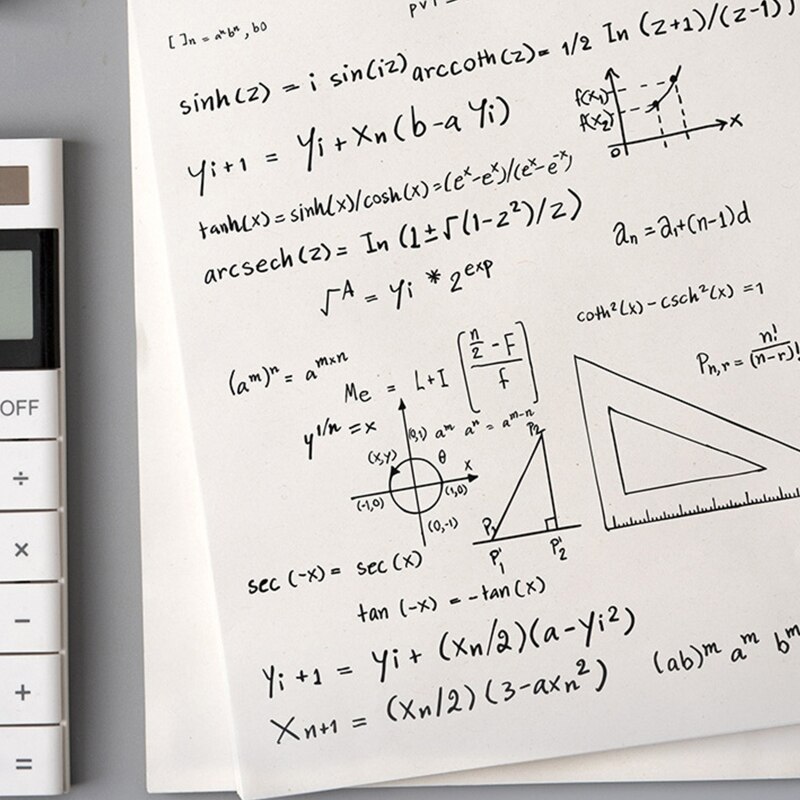 [ ]n = aⁿbⁿ, b0
sinh(z) = i sin(iz) arccoth(z) = 1/2 In (z+1)/(z-1))
f(x₁)
f(x₂)
0
x
yi+1 = yi + xn (b-a yi)
tanh(x) = sinh(x)/cosh(x) = (eˣ-eˣ)/(eˣ-e⁻ˣ)
arcsech(z) = In (1±√(1-z²)/z)
an = a₁+(n-1)d
√A = yi * 2^exp
coth²(x) - csch²(x) = 1
Pn,r = n!/(n-r)!
(aᵐ)ⁿ = aᵐˣⁿ
Me = L+I [(n/2 - F)/f]
y^1/n = x
(0,1) aᵐ aⁿ = aᵐ⁻ⁿ
(x,y)
θ
x
(-1,0)
(1,0)
(0,-1)
P₂
P₁
P'₁
P'₂
sec (-x) = sec (x)
tan (-x) = -tan(x)
yi+1 = yi + (xn/2)(a-yi²)
(ab)ᵐ aᵐ bᵐ
xn+1 = (xn/2)(3-axn²)
OFF
÷
×
−
+
=